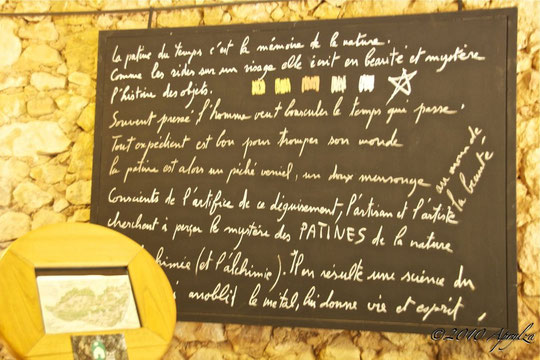 la patine du temps c'est la mémoire de la nature.
Comme les rides sur un visage elle écrit en beauté et mystère
l'histoire des objets.
Souvent pressé, l'homme veut bousculer le temps qui passe.
Tout expédient est bon pour tromper son monde
la patine est alors un péché véniel, un doux mensonge
au nom de
la beauté
Conscients de l'artifice de ce déguisement, l'artisan et l'artiste
cherchent à percer le mystère des PATINES de la nature
chimie (et l'alchimie). Il en résulte une science du
anoblit le métal, lui donne vie et esprit,
©2010